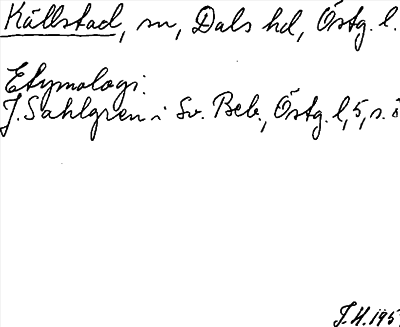 Källstad, sn, Dals hd, Östg. l.
Etymologi:
J. Sahlgren i Sv. Beb., Östg. l, 5, s.
J.H. 195